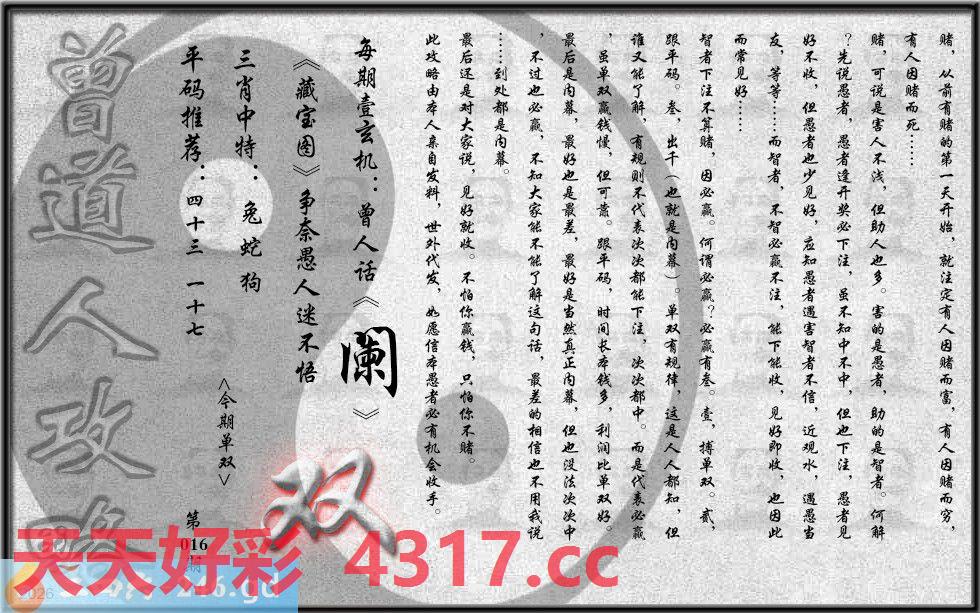 赌，从前有赌的第一天开始，就注定有人因赌而富，有人因赌而穷，
有人因赌而死……
赌，可说是害人不浅，但助人也多。害的是愚者，助的是智者。何解
？先说愚者，愚者逢开奖必下注，虽不知中不中，但也下注，愚者见
好不收，但愚者也少见好，应知愚者遇害智者不信，近观水，遇愚当
友，等等……而智者，不智必赢不注，能下能收，见好即收，也因此
而常见好……
智者下注不算赌，因必赢。何谓必赢？必赢有叁。壹，搏单双。贰，
跟平码。叁，出千（也就是内幕）。单双有规律，这是人人都知，但
谁又能了解，有规则不代表次次都能下注，次次都中。而是代表必赢
，虽单双赢钱慢，但可靠。跟平码，时间长本钱多，利润比单双好。
最后是内幕，最好也是最差，最好是当然真正内幕，但也没法次次中
，不过也必赢，不知大家能不能了解这句话，最差的相信也不用我说
……到处都是内幕。
最后还是对大家说，见好就收。不怕你赢钱，只怕你不赌。
此攻略由本人亲自发料，世外代发，如愿信本愚者必有机会收手。
每期壹玄机：曾人话《阑》
《藏宝图》争奈愚人迷不悟
三肖中特：兔 蛇 狗
平码推荐：四十三 一十七
<今期单双>
双
第
016
期
曾道人攻略
天天好彩 4317.cc
2026